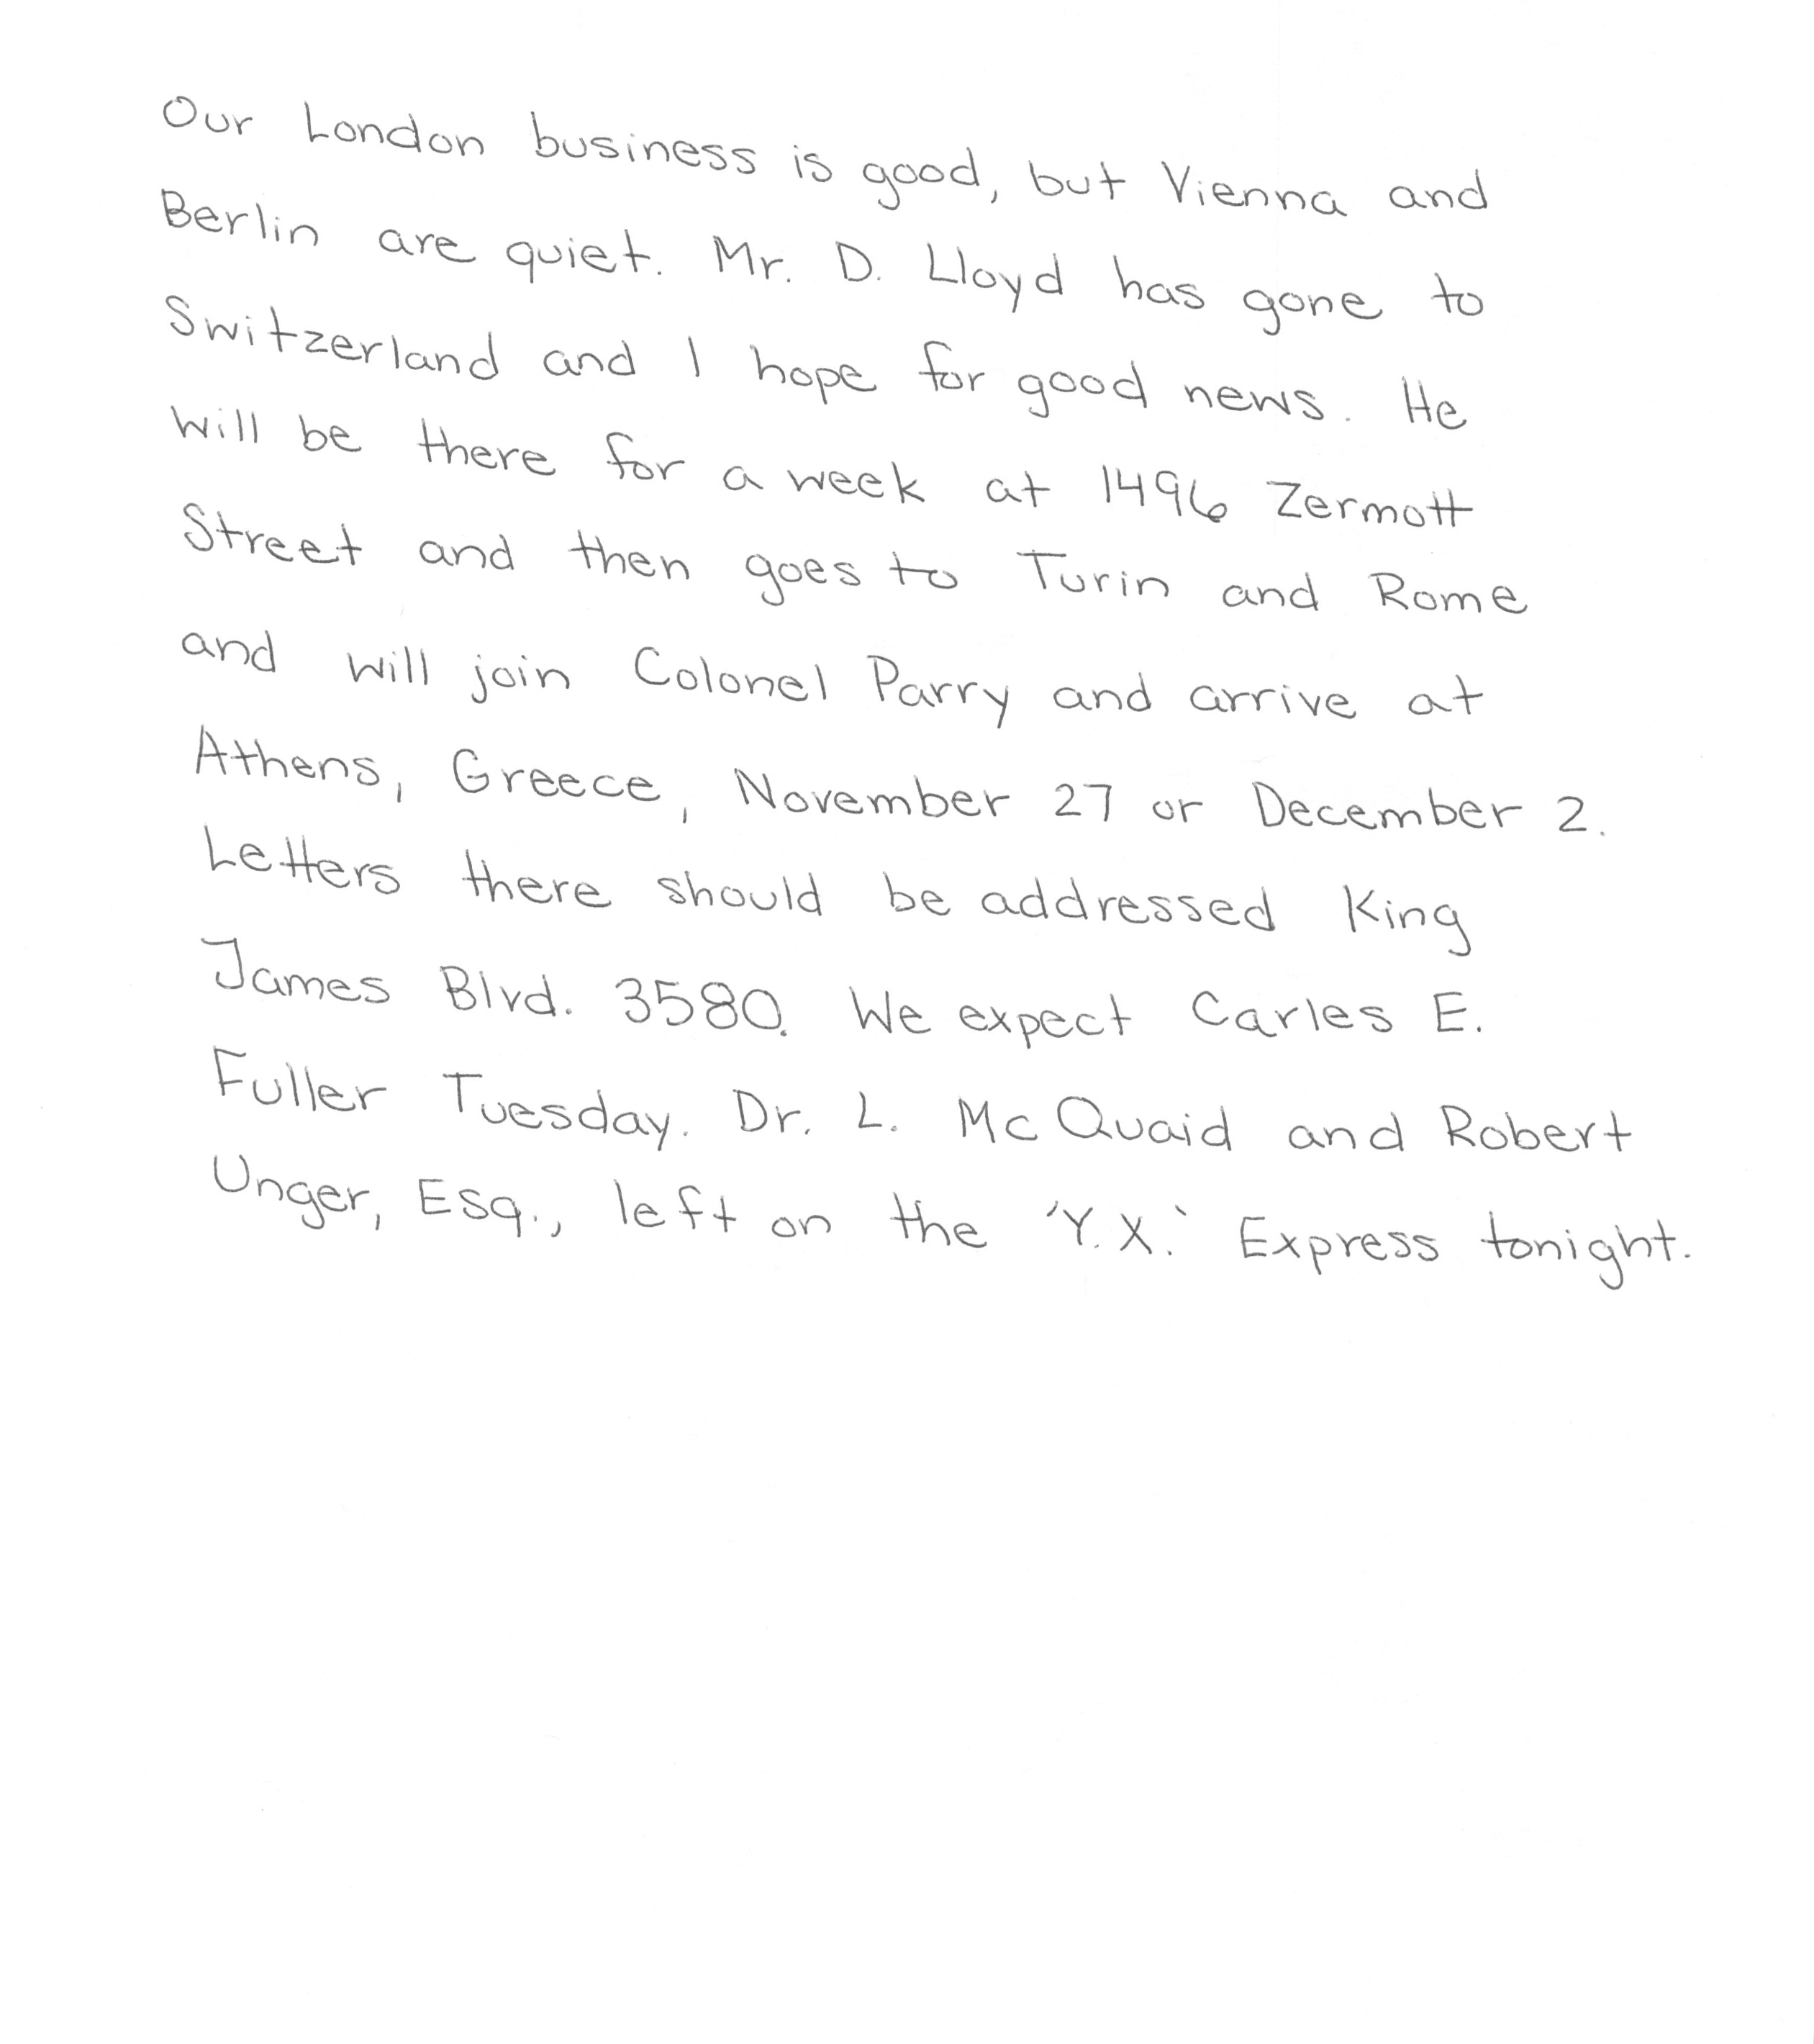 Our London business is good, but Vienna and
Berlin are quiet. Mr. D. Lloyd has gone to
Switzerland and I hope for good news. He
will be there for a week at 1496 Zermott
Street and then goes to Turin and Rome
and will join Colonel Parry and arrive at
Athens, Greece, November 27 or December 2.
Letters there should be addressed King
James Blvd. 3580. We expect Carles E.
Fuller Tuesday. Dr. L. Mc Quaid and Robert
Unger, Esq., left on the 'Y.X.' Express tonight.